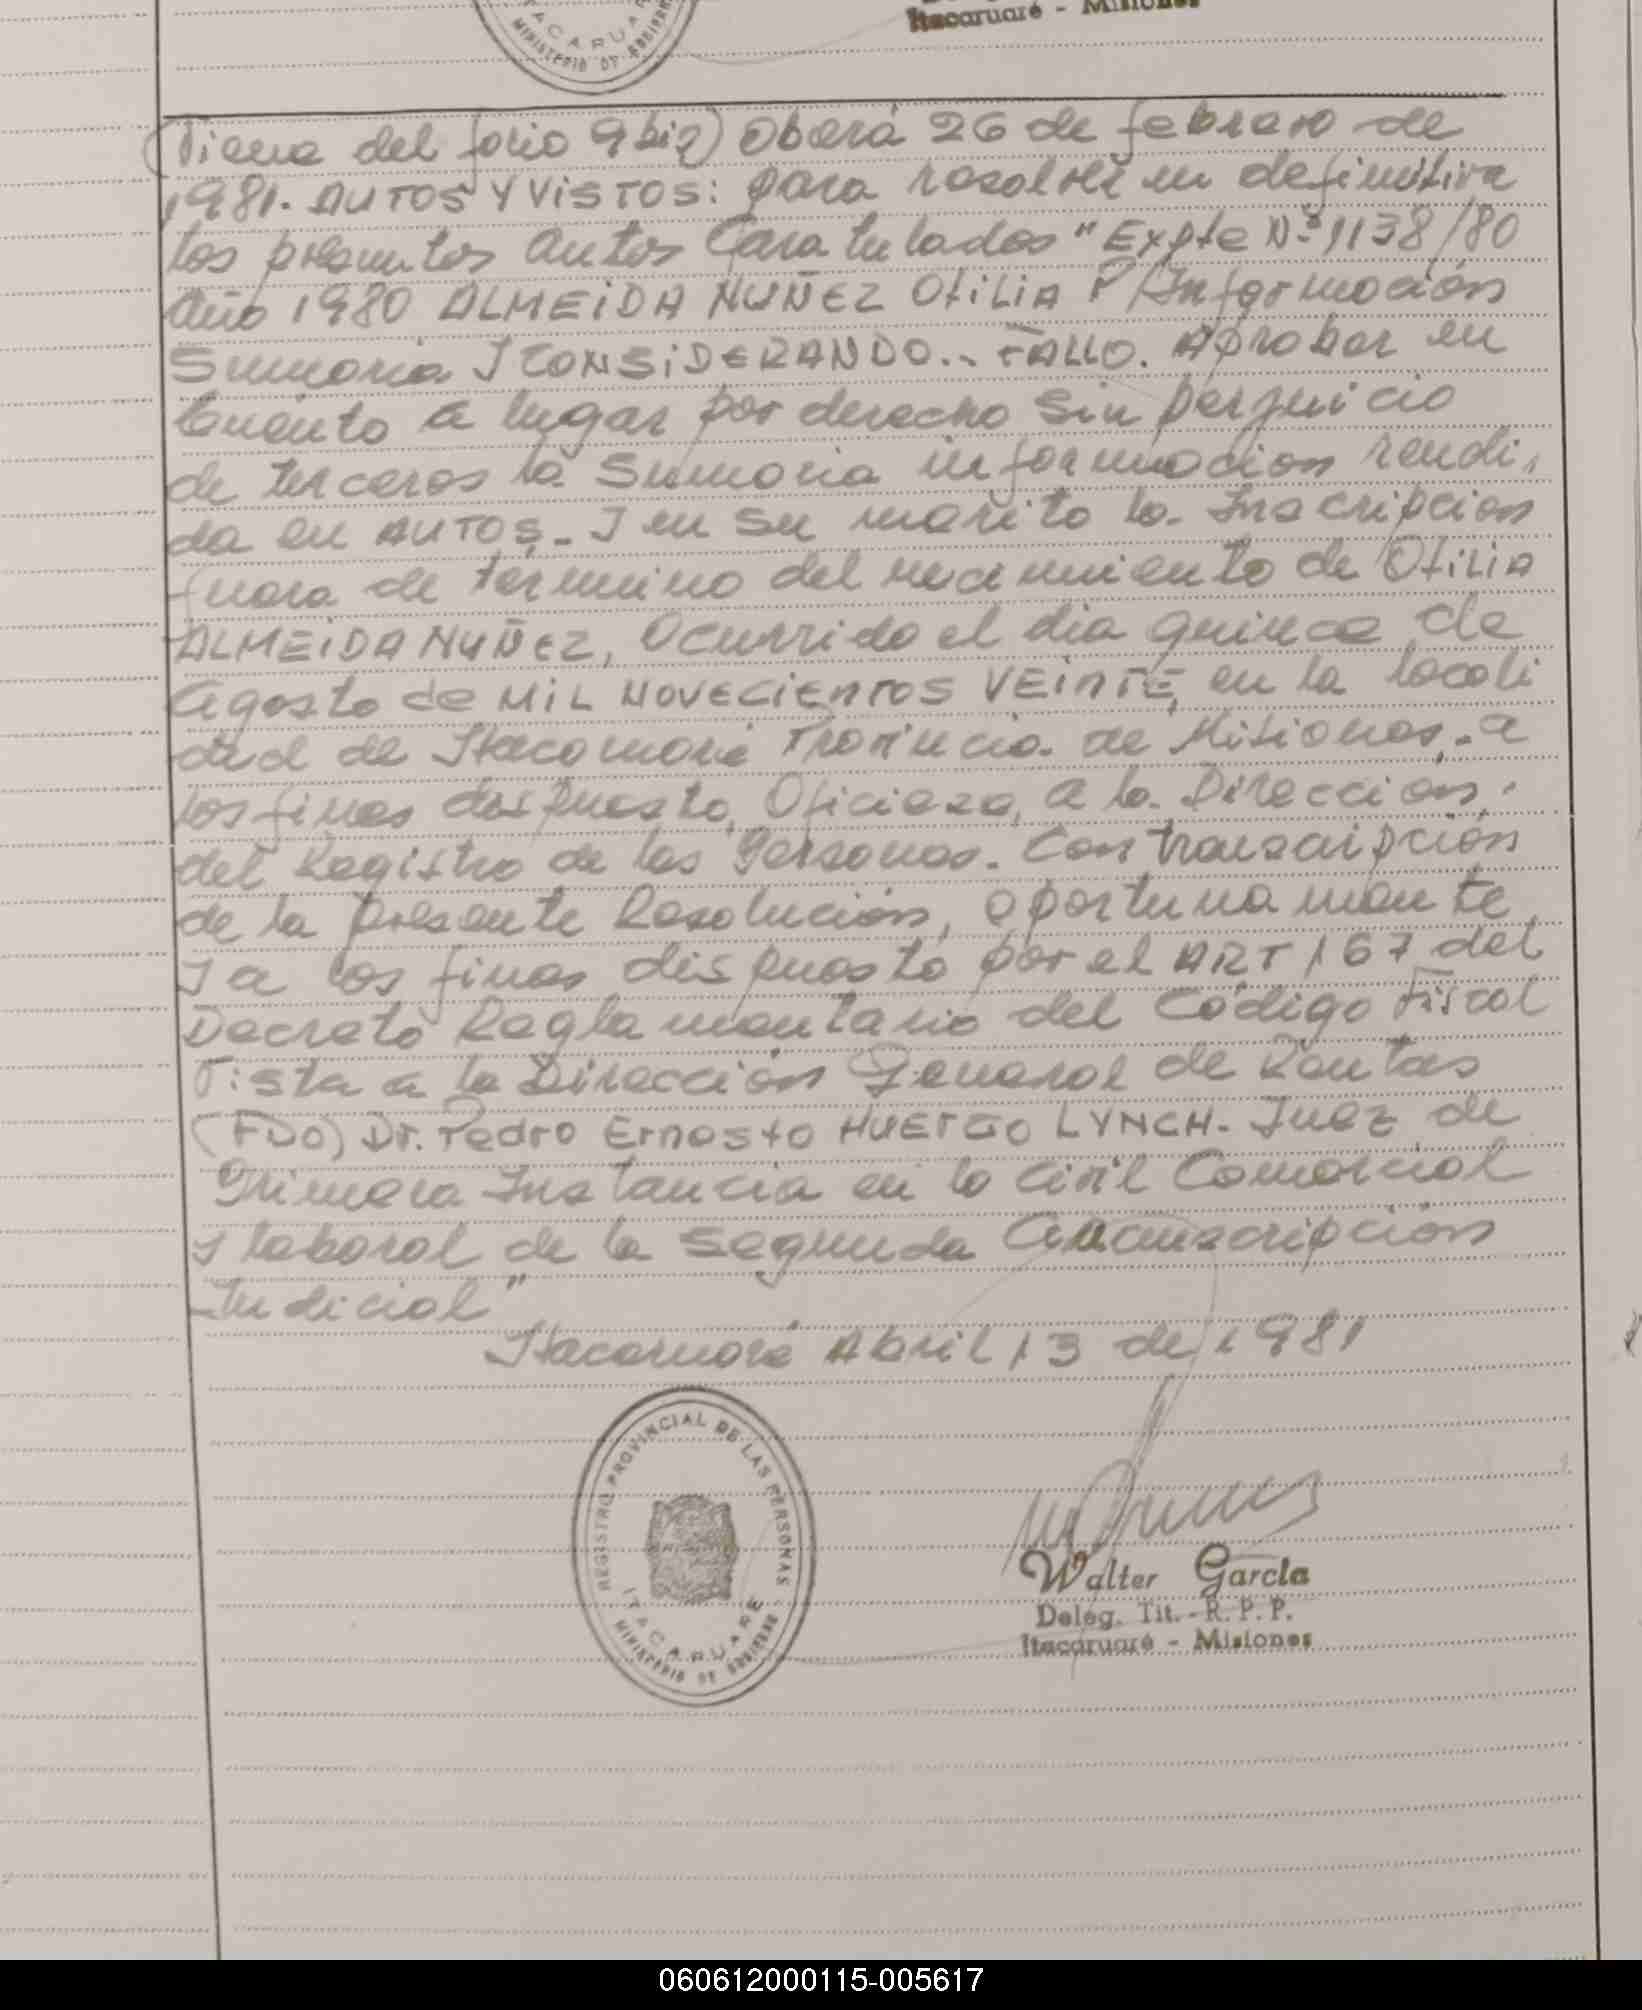 ITACARUARE
MINISTERIO DE GOBIERNO
Itacaruaré - Misiones
(Viene del folio 9 biz) Oberá 26 de febrero de
1981. AUTOS Y VISTOS: para resolver en definitiva
los presentes autos Caratulados "Expte Nº 1138/80
Año 1980 ALMEIDA NUÑEZ OtiLiA P/Información
Sumaria I CONSiDERANDO.. FALLO. Aprobar en
Cuanto a lugar por derecho Sin perjuicio
de terceros la Sumaria informacion rendi,
da en AUTOS.- I en su merito la Inscripcion
fuera de termino del nacimiento de OtiLiA
ALMEiDA NUÑEZ, Ocurrido el dia quince de
Agosto de MiL NOVECIENTOS VEiNTE, en la locali
dad de Itacaruaré Provincia de Misiones.- a
los fines dispuesto, Oficiese, a la Direccion,
del Registro de las Personas. Con transcripción
de la presente Resolución, oportunamente,
I a los fines dispuesto por el ART 167 del
Decreto Reglamentario del Código Fiscal
Vista a la Dirección General de Rentas
(FDO) Dr. Pedro Ernesto HUERGO LYNCH- Juez de
Primera Instancia en lo Civil Comercial
I laboral de la Segunda Circunscripción
Judicial"
Itacaruaré Abril 13 de 1981
REGISTRO PROVINCIAL DE LAS PERSONAS
ITACARUARE
MINISTERIO DE GOBIERNO
Walter García
Deleg. Tit. - R. P. P.
Itacaruaré - Misiones
060612000115-005617